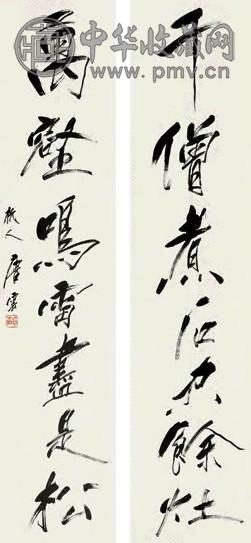 中华收藏网
www.pmv.cn
千僧煮石空餘灶
萬壑鳴雷盡是松
杭人唐雲